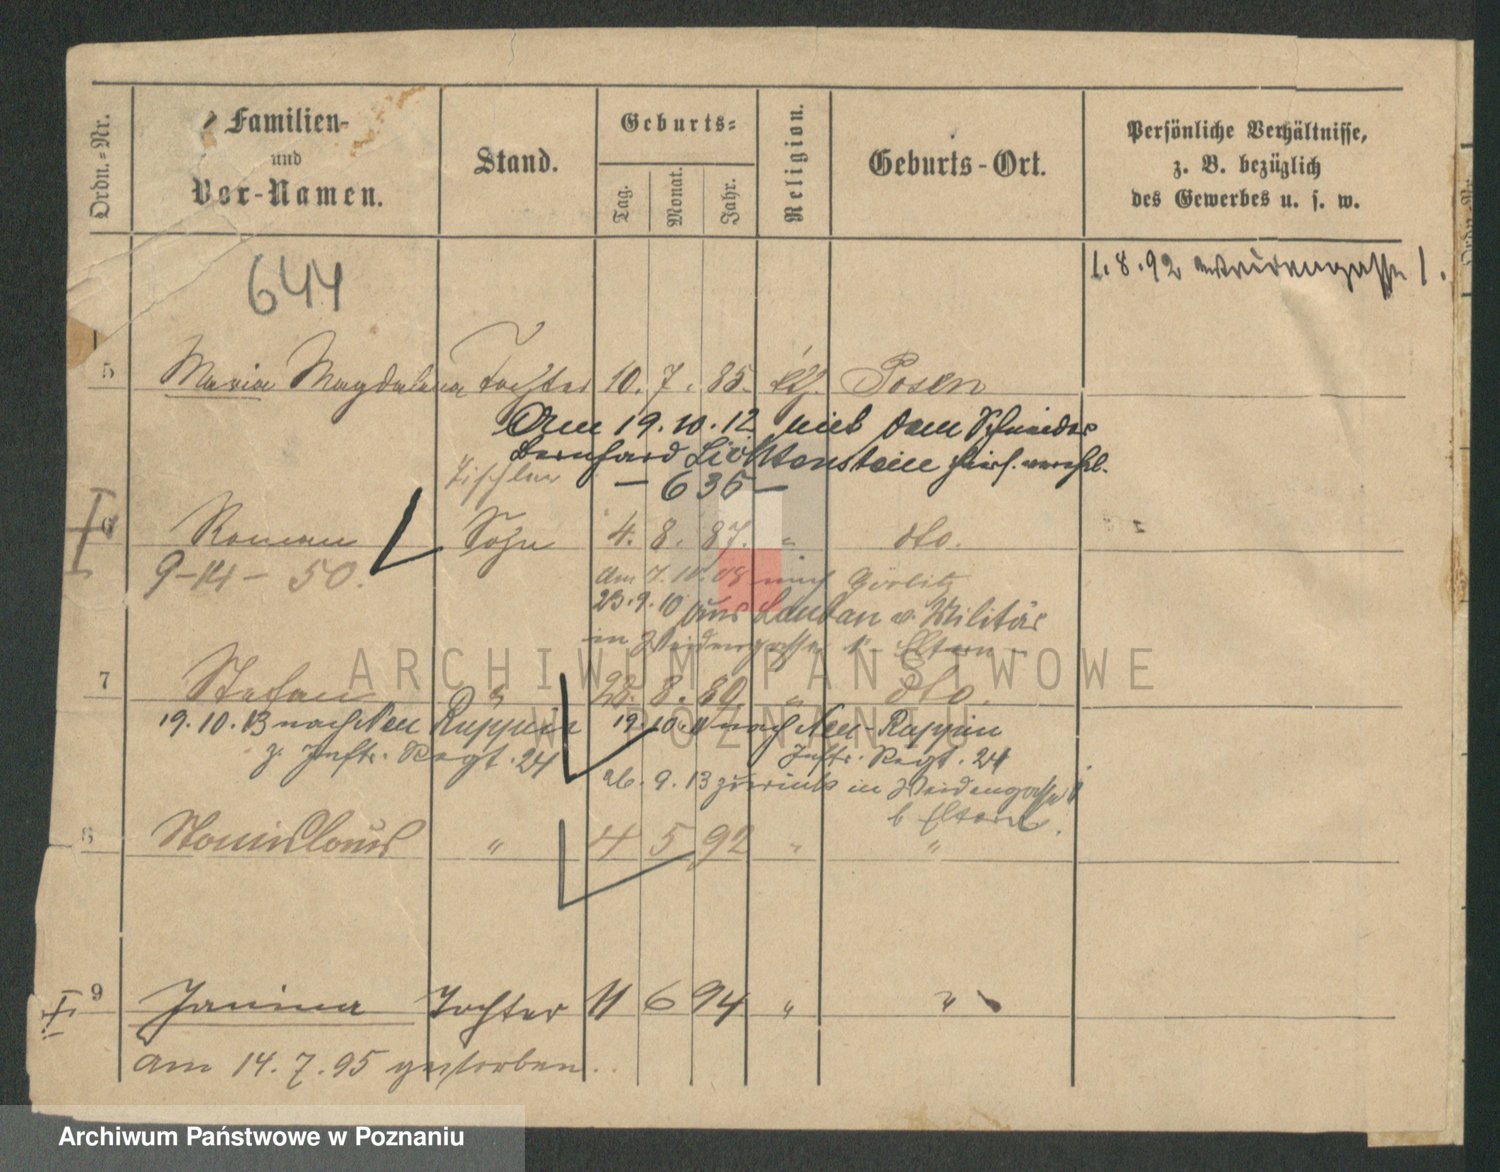 Ordn.-Nr.
Familien-
und
Vor-Namen.
Stand.
Geburts-
Tag.
Monat.
Jahr.
Religion.
Geburts-Ort.
Persönliche Verhältnisse,
z. B. bezüglich
des Gewerbes u. s. w.
644
1. 8. 92 1.
5 Maria Magdalena Tochter 10. 7. 85. kth. Posen
Am 19.10.12 mit dem Schneider
Bernhard Lichtenstein hier verehl.
Tischler — 635 —
6 Roman Sohn 4. 8. 87. " dto.
9-14- 50.
am 7.10.08 nach Görlitz
23.9.10 aus Lauban v. Militär
in Weidengasse 1 Eltern
7 Stefan " 22. 8. 89. " dto.
19.10.13 nach Neu Ruppin
z. Inftr. Regt. 24
19.10.11 nach Neu-Ruppin
Inftr. Regt. 24
26.9.13 zurück in Weidengasse 1
b Eltern.
8 Stanislaus " 4 5 92 " "
9 Janina Tochter 11 6 94 " "
am 14.7.95 gestorben.
ARCHIWUM PAŃSTWOWE
W POZNANIU
Archiwum Państwowe w Poznaniu